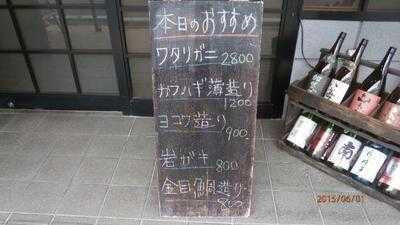 本日のおすすめ
ワタリガニ 2800
カワハギ薄造り
1200
ヨコワ造り
900
岩ガキ 800
金目鯛造り
800
南
2015/06/01